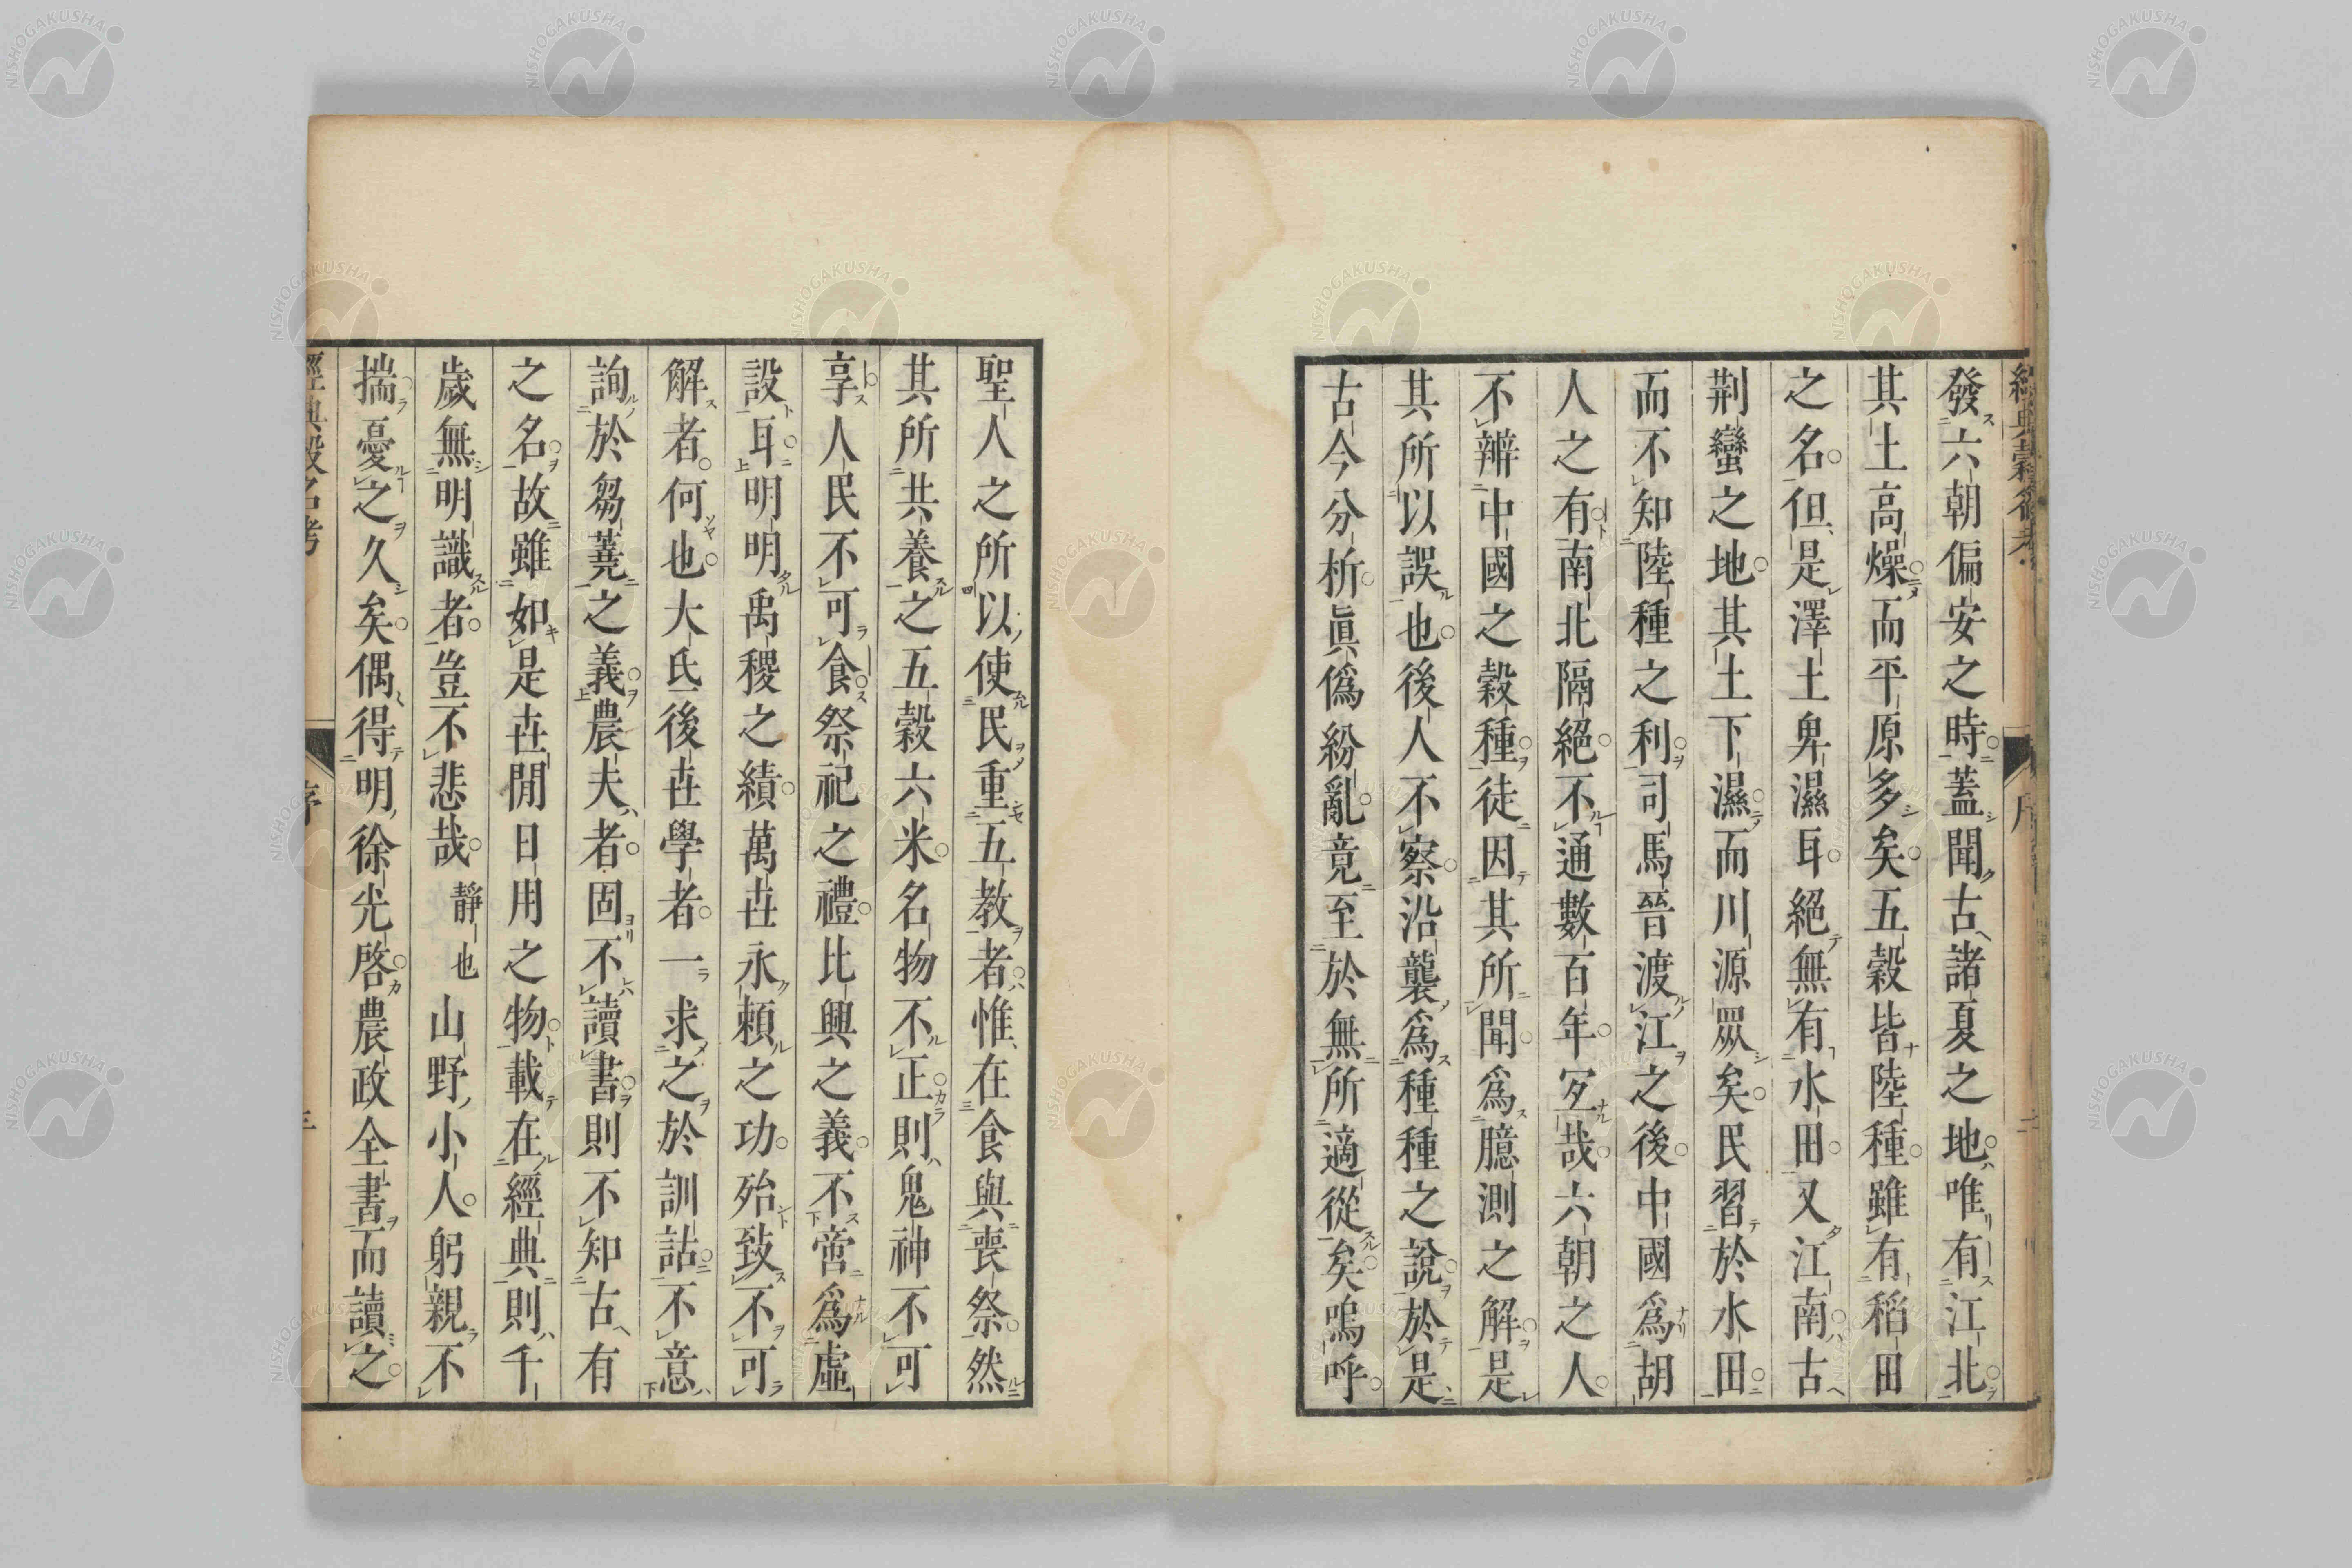 發六朝偏安之時蓋聞古諸夏之地唯有江北
其土高燥而平原多矣五穀皆陸種雖有稻田
之名但是澤土卑濕耳絕無有水田又江南古
荆蠻之地其土下濕而川源眾矣民習於水田
而不知陸種之利司馬晉渡江之後中國爲胡
人之有南北隔絕不通數百年宜哉六朝之人
不辨中國之穀種徒因其所聞爲臆測之解是
其所以誤也後人不察沿襲爲種種之說於是
古今分析眞僞紛亂竟至於無所適從矣嗚呼
聖人之所以使民重五教者惟在食與喪祭然
其所共養之五穀六米名物不正則鬼神不可
享人民不可食祭祀之禮比興之義不啻爲虛
設耳明明禹稷之績萬世永賴之功殆致不可
解者何也大氐後世學者一求之於訓詁不意
詢於芻蕘之義農夫者固不讀書則不知古有
之名故雖如是世間日用之物載在經典則千
歲無明識者豈不悲哉靜也山野小人躬親不
揣憂之久矣偶得明徐光啓農政全書而讀之
經典穀名考 序
NISHOGAKUSHA